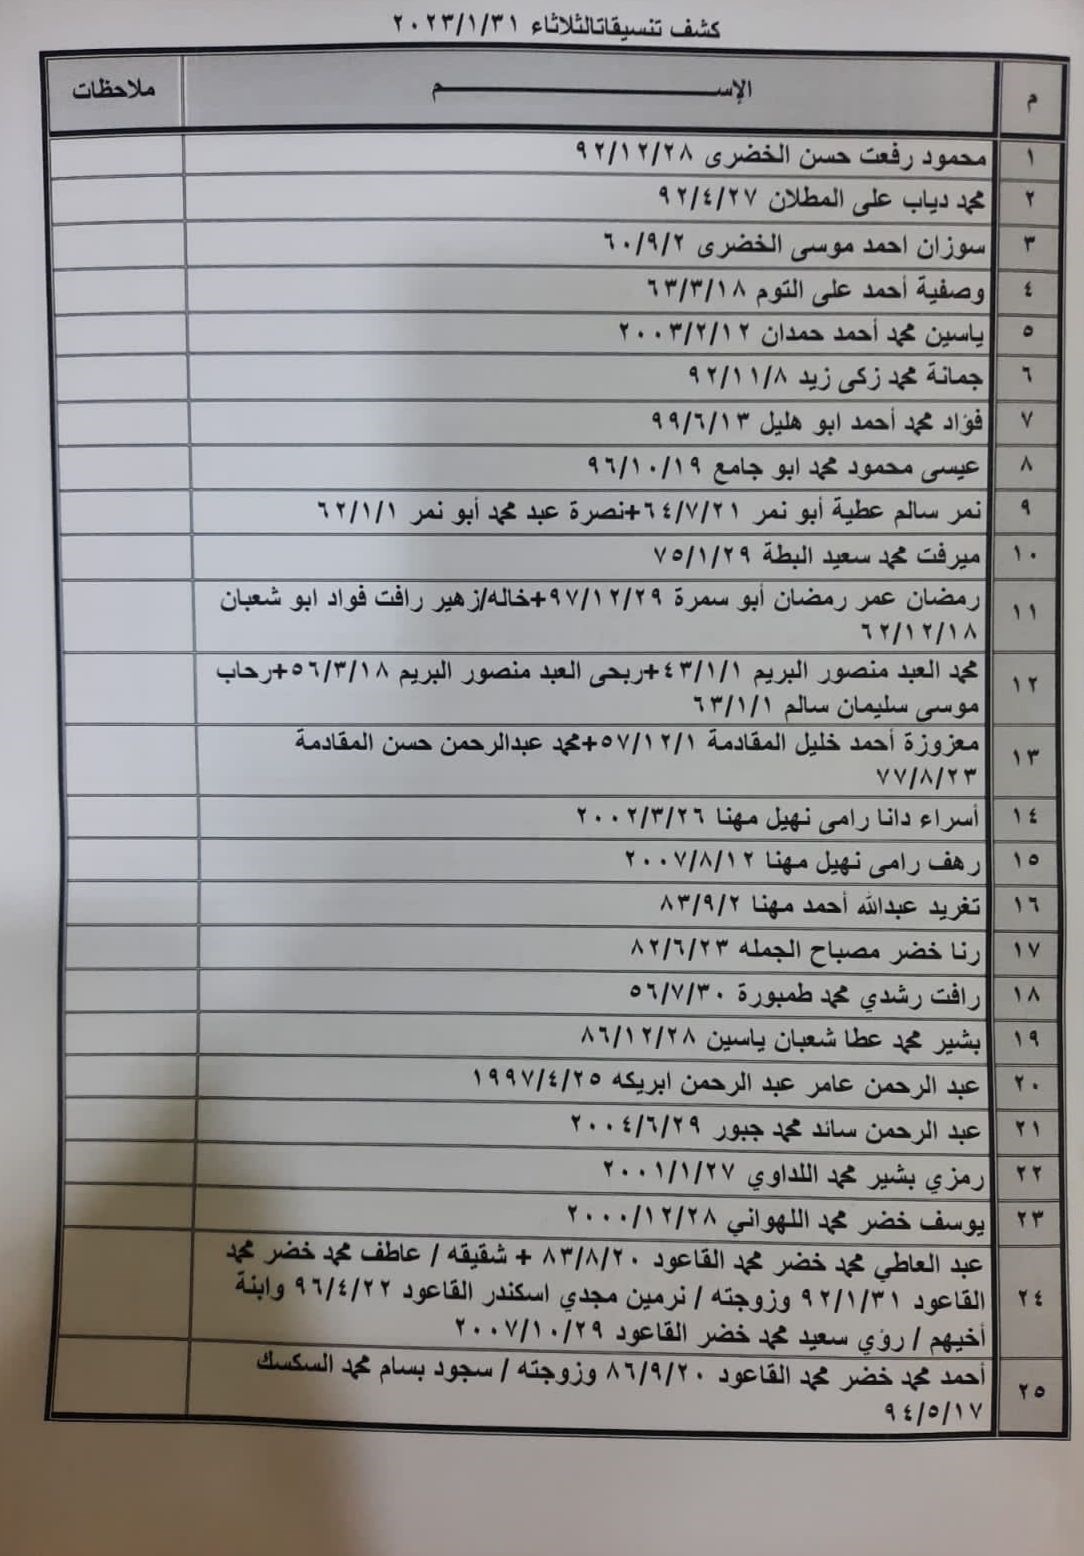 كشف تنسيقاتالثلاثاء ٢٠٢٣/١/٣١
م الإســـــــــــــــــــــــــم ملاحظات
١ محمود رفعت حسن الخضرى ٩٢/١٢/٢٨
٢ محمد دياب على المطلان ٩٢/٤/٢٧
٣ سوزان احمد موسى الخضرى ٦٠/٩/٢
٤ وصفية أحمد على التوم ٦٣/٣/١٨
٥ ياسين محمد أحمد حمدان ٢٠٠٣/٢/١٢
٦ جمانة محمد زكى زيد ٩٢/١١/٨
٧ فؤاد محمد أحمد ابو هليل ٩٩/٦/١٣
٨ عيسى محمود محمد ابو جامع ٩٦/١٠/١٩
٩ نمر سالم عطية أبو نمر ٦٤/٧/٢١+نصرة عبد محمد أبو نمر ٦٢/١/١
١٠ ميرفت محمد سعيد البطة ٧٥/١/٢٩
١١ رمضان عمر رمضان أبو سمرة ٩٧/١٢/٢٩+خاله/زهير رافت فواد ابو شعبان
٦٢/١٢/١٨
١٢ محمد العبد منصور البريم ٤٣/١/١+ربحى العبد منصور البريم ٥٦/٣/١٨+رحاب
موسى سليمان سالم ٦٣/١/١
١٣ معزوزة أحمد خليل المقادمة ٥٧/١٢/١+محمد عبدالرحمن حسن المقادمة
٧٧/٨/٢٣
١٤ أسراء دانا رامى نهيل مهنا ٢٠٠٢/٣/٢٦
١٥ رهف رامى نهيل مهنا ٢٠٠٧/٨/١٢
١٦ تغريد عبدالله أحمد مهنا ٨٣/٩/٢
١٧ رنا خضر مصباح الجمله ٨٢/٦/٢٣
١٨ رافت رشدي محمد طمبورة ٥٦/٧/٣٠
١٩ بشير محمد عطا شعبان ياسين ٨٦/١٢/٢٨
٢٠ عبد الرحمن عامر عبد الرحمن ابريكه ١٩٩٧/٤/٢٥
٢١ عبد الرحمن سائد محمد جبور ٢٠٠٤/٦/٢٩
٢٢ رمزي بشير محمد اللداوي ٢٠٠١/١/٢٧
٢٣ يوسف خضر محمد اللهواني ٢٠٠٠/١٢/٢٨
٢٤ عبد العاطي محمد خضر محمد القاعود ٨٣/٨/٢٠ + شقيقه / عاطف محمد خضر محمد
القاعود ٩٢/١/٣١ وزوجته / نرمين مجدي اسكندر القاعود ٩٦/٤/٢٢ وابنة
أخيهم / رؤي سعيد محمد خضر القاعود ٢٠٠٧/١٠/٢٩
٢٥ أحمد محمد خضر محمد القاعود ٨٦/٩/٢٠ وزوجته / سجود بسام محمد السكسك
٩٤/٥/١٧